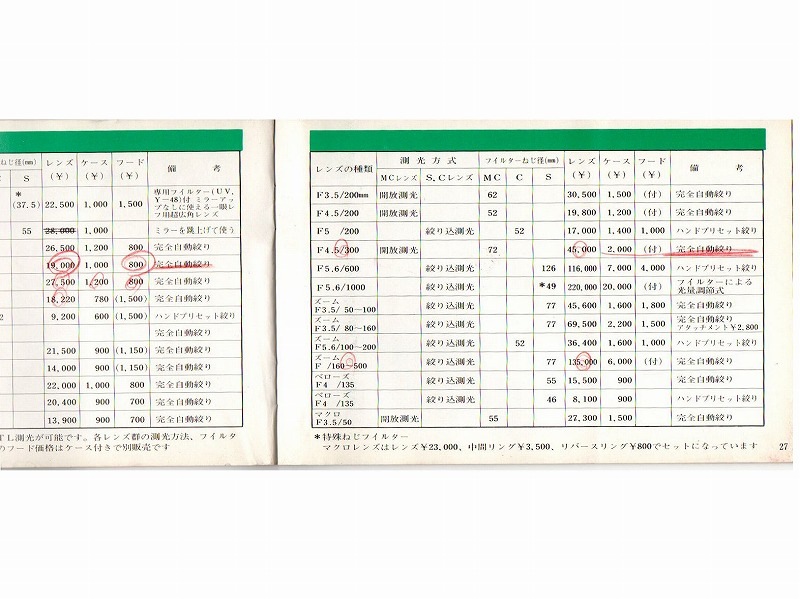 ねじ径(mm) レンズ(¥) ケース(¥) フード(¥) 備 考
S
*(37.5) 22,500 1,000 1,500 専用フイルター(UV,
Y−48)付 ミラーアッ
プなしに使える一眼レ
フ用超広角レンズ
55 28,000 1,000 ミラーを跳上げて使う
26,500 1,200 800 完全自動絞り
19,000 1,000 800 完全自動絞り
27,500 1,200 800 完全自動絞り
18,220 780 (1,500) 完全自動絞り
2 9,200 600 (1,500) ハンドプリセット絞り
完全自動絞り
21,500 900 (1,150) 完全自動絞り
14,000 900 (1,150) 完全自動絞り
22,000 1,000 800 完全自動絞り
20,400 900 700 完全自動絞り
13,900 900 700 完全自動絞り
TL測光が可能です。各レンズ群の測光方法、フイルタ
のフード価格はケース付きで別販売です
レンズの種類 測光方式 フイルターねじ径(mm) レンズ(¥) ケース(¥) フード(¥) 備 考
MCレンズ S,Cレンズ MC C S
F3.5/200mm 開放測光 62 30,500 1,500 (付) 完全自動絞り
F4.5/200 開放測光 52 19,800 1,200 (付) 完全自動絞り
F5 /200 絞り込測光 52 17,000 1,400 1,000 ハンドプリセット絞り
F4.5/300 開放測光 72 45,000 2,000 (付) 完全自動絞り
F5.6/600 絞り込測光 126 116,000 7,000 4,000 ハンドプリセット絞り
F5.6/1000 絞り込測光 *49 220,000 20,000 (付) フイルターによる
光量調節式
ズーム
F3.5/ 50~100 絞り込測光 77 45,600 1,600 1,800 完全自動絞り
ズーム
F3.5/ 80~160 絞り込測光 77 69,500 2,200 1,500 完全自動絞り
アタッチメント¥2,800
ズーム
F5.6/100~200 絞り込測光 52 36,400 1,600 1,000 ハンドプリセット絞り
ズーム
F /160~500 絞り込測光 77 135,000 6,000 (付) 完全自動絞り
ベローズ
F4 /135 絞り込測光 55 15,500 900 完全自動絞り
ベローズ
F4 /135 絞り込測光 46 8,100 900 ハンドプリセット絞り
マクロ
F3.5/50 開放測光 55 27,300 1,500 完全自動絞り
*特殊ねじフイルター
マクロレンズはレンズ¥23,000、中間リング¥3,500、リバースリング¥800でセットになっています
27